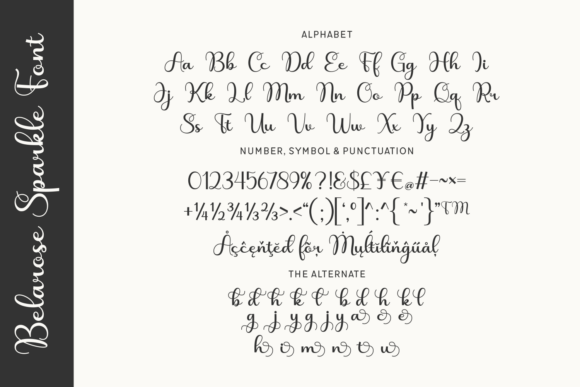 Belarose Sparkle Font
ALPHABET
Aa Bb Cc Dd Ee Ff Gg Hh Ii
Jj Kk Ll Mm Nn Oo Pp Qq Rr
Ss Tt Uu Vv Ww Xx Yy Zz
NUMBER, SYMBOL & PUNCTUATION
0123456789%?!&$£¥€@#-~×=
+¼½¾⅓⅔>.<“(;)[‘,°]^:^{*~'}”TM
Åçĉęňţёđ fõŗ Ṁųłťíľíňĝűạŀ
THE ALTERNATE
b d h k t b d h k l
g j y g j y a e e
h i m n t u